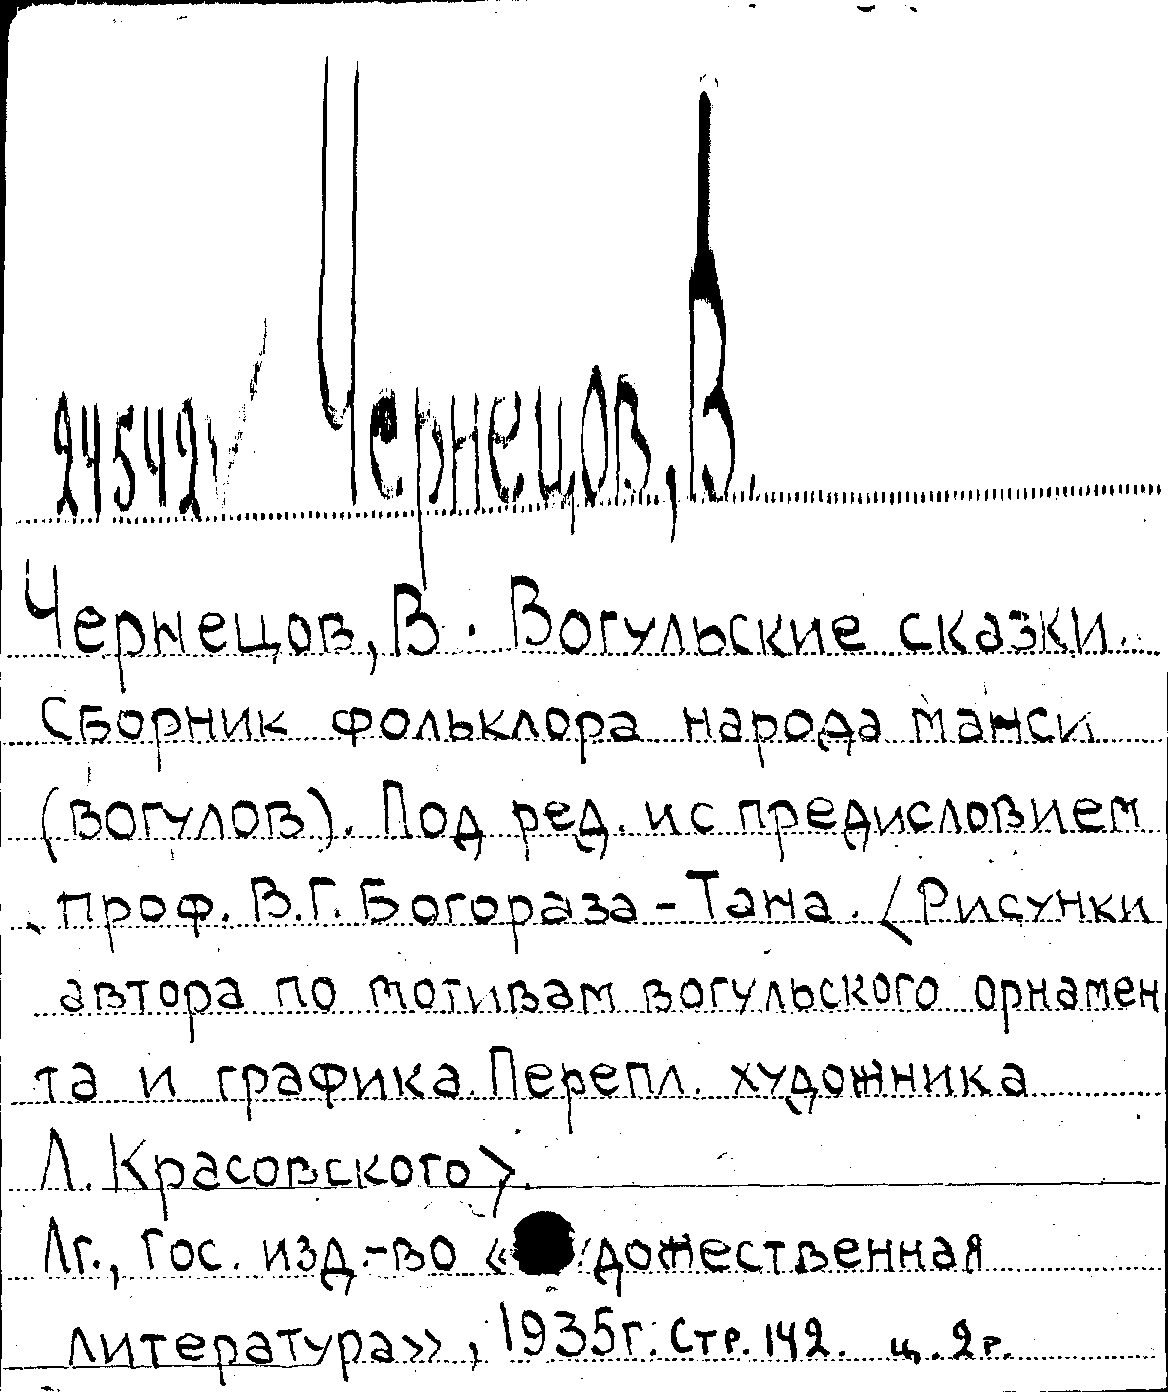 24542 Чернецов, В.
Чернецов, В. Вогульские сказки.
Сборник фольклора народа манси
(вогулов). Под ред. и с предисловием
проф. В.Г. Богораза-Тана. (Рисунки
автора по мотивам вогульского орнамен
та и графика. Перепл. художника
Л. Красовского).
Лг., Гос. изд.-во «дожественная
литература», 1935г. Стр. 142. ц. 2 р.